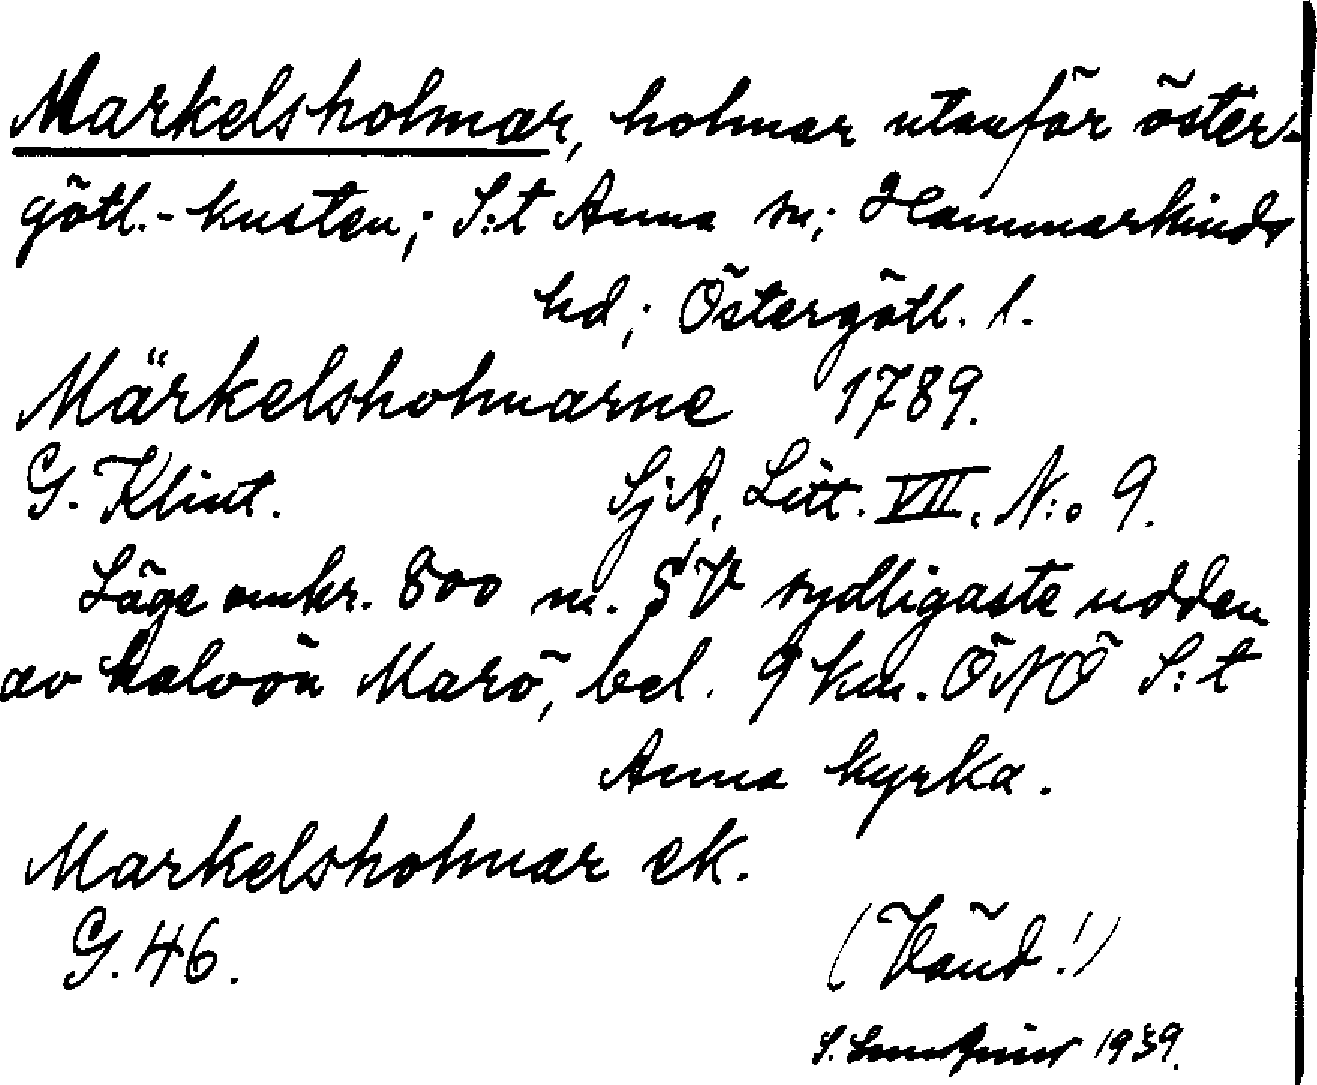 Markelsholmar, holmar utanför öster-
götl.-kusten; S:t Anna sn; Hammarkinds
hd; Östergötl. l.
Märkelsholmarne 1789.
G. Klint. Sj.A, Litt. VII. N:o 9.
Läge omkr. 800 m. SV sydligaste udden
av halvön Marö, bel. 9 km. ÖNÖ S:t
Anna kyrka.
Markelsholmar ek.
G. 46.
(Vänd!)
S. 1939.